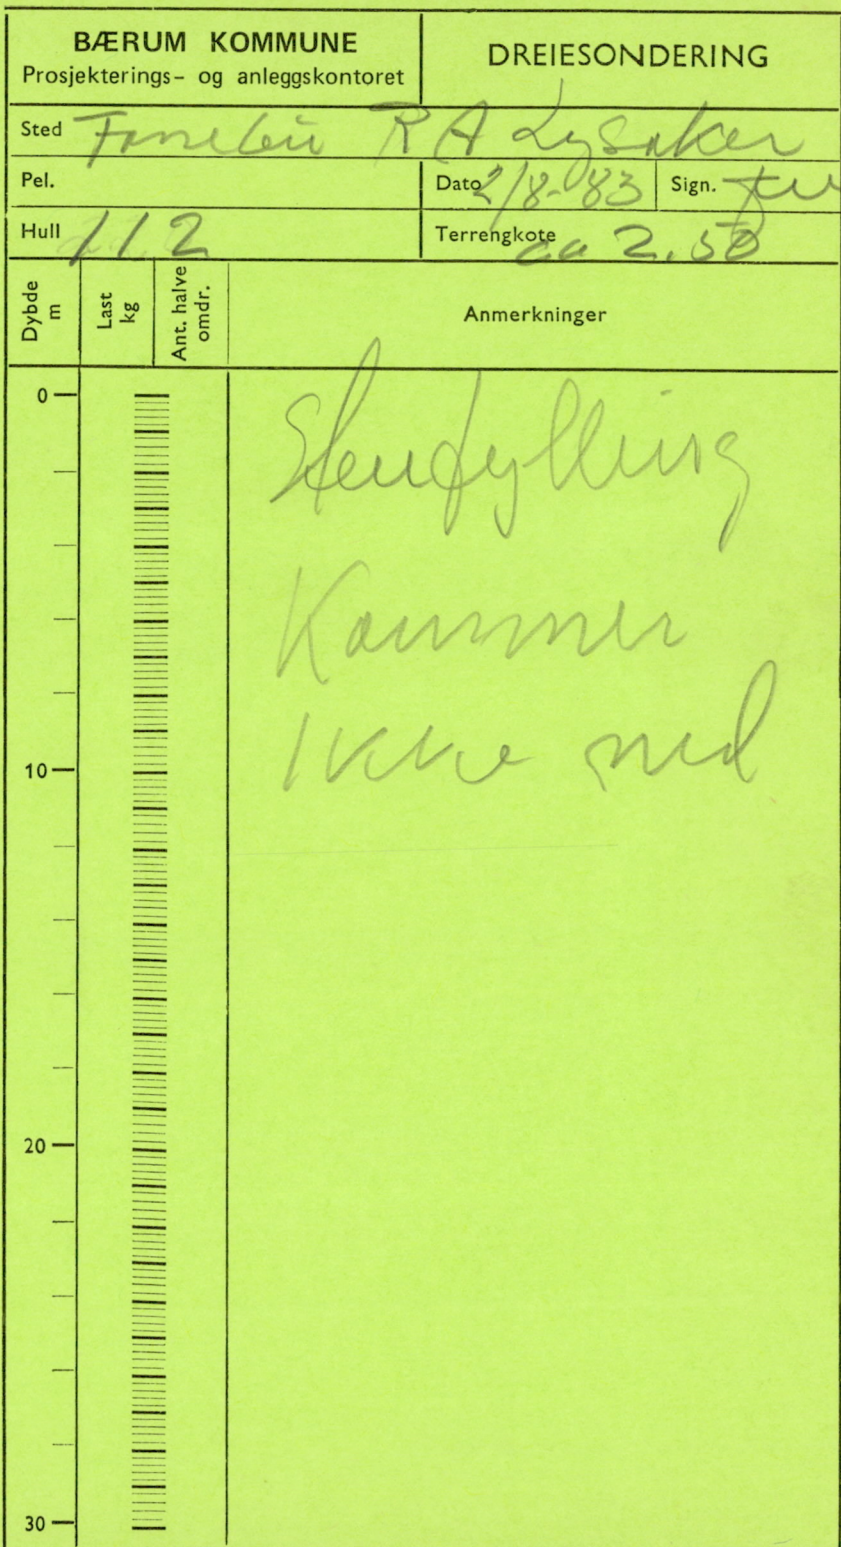 BÆRUM KOMMUNE
Prosjekterings- og anleggskontoret
DREIESONDERING
Sted Fornebu R A Lysaker
Pel.
Dato 2/8-83
Sign.
Hull 112
Terrengkote ca 2.50
Dybde m
Last kg
Ant. halve omdr.
Anmerkninger
0
Stenfylling
Kommer
10
ikke ned
20
30